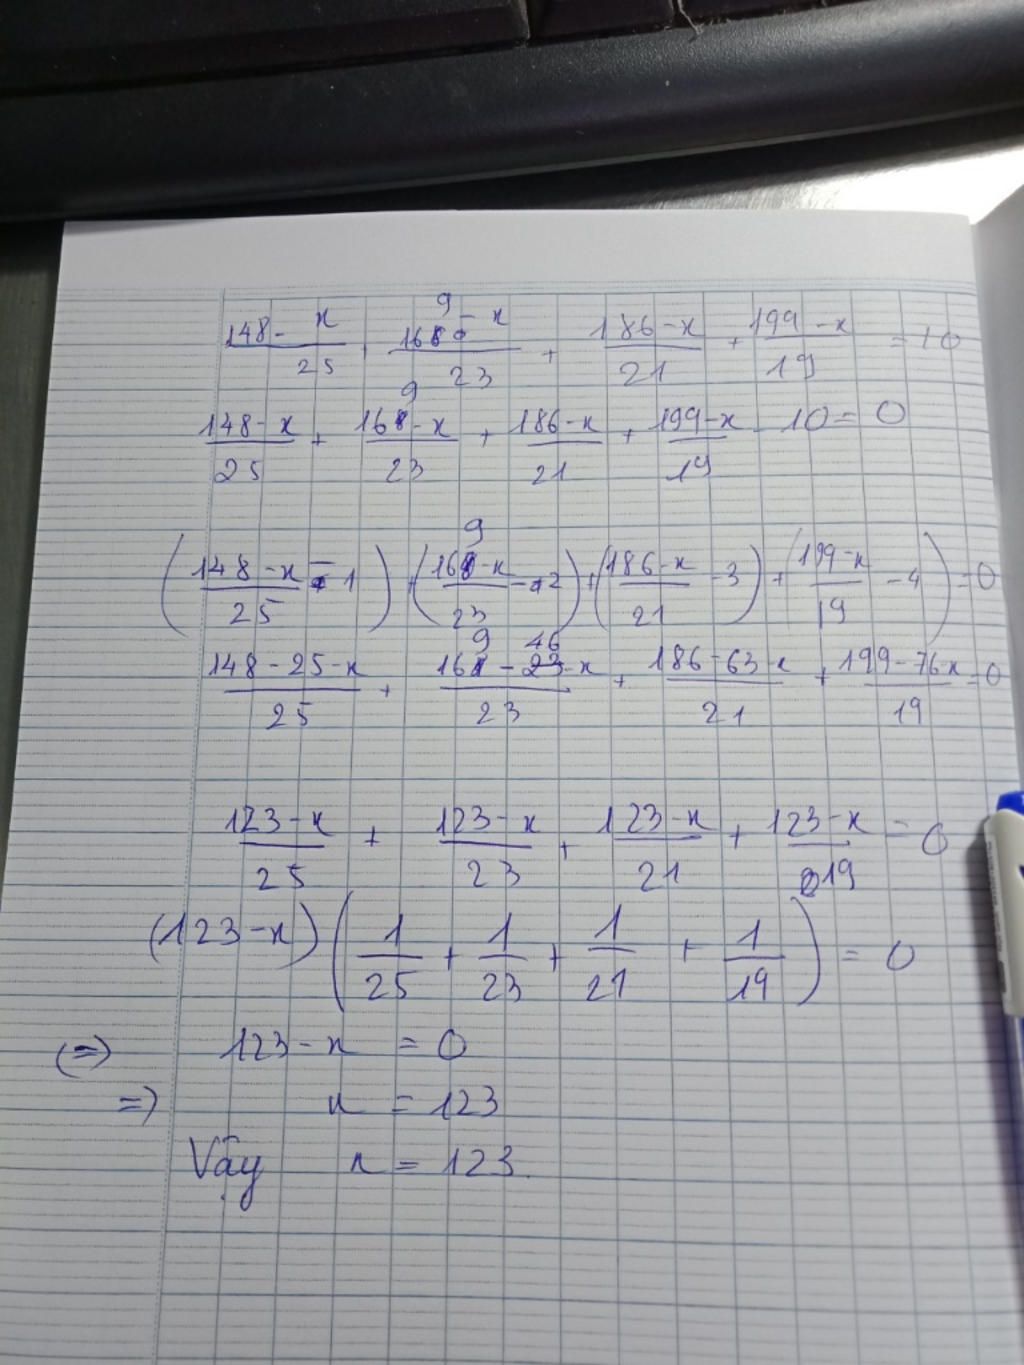 148 - x / 25 + 169 - x / 23 + 186 - x / 21 + 199 - x / 19 = 10
148 - x / 25 + 169 - x / 23 + 186 - x / 21 + 199 - x / 19 - 10 = 0
(148 - x / 25 - 1) + (169 - x / 23 - 2) + (186 - x / 21 - 3) + (199 - x / 19 - 4) = 0
148 - 25 - x / 25 + 169 - 46 - x / 23 + 186 - 63 - x / 21 + 199 - 76 - x / 19 = 0
123 - x / 25 + 123 - x / 23 + 123 - x / 21 + 123 - x / 19 = 0
(123 - x) (1 / 25 + 1 / 23 + 1 / 21 + 1 / 19) = 0
(=) 123 - x = 0
=) x = 123
Vậy x = 123.